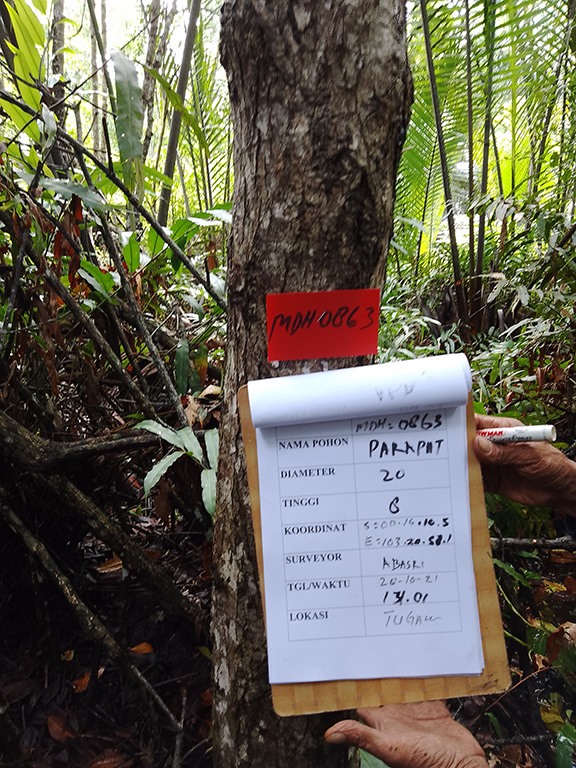 MDH0863
MDH=0863
NAMA POHON PARAPAT
DIAMETER 20
TINGGI 8
KOORDINAT S=00.16.10.5
E=103.20.58.1
SURVEYOR ABASRI
TGL/WAKTU 20-10-21
13.01
LOKASI
SNOWMAN